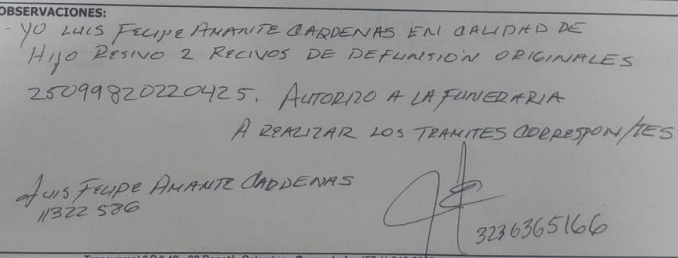 OBSERVACIONES:
- YO LUIS FELIPE AMANTE CARDENAS EN CALIDAD DE
HIJO RESIVO 2 RECIVOS DE DEFUNSIÓN ORIGINALES
25099820220425. AUTORIZO A LA FUNERARIA
A REALIZAR LOS TRAMITES CORRESPON/TES
LUIS FELIPE AMANTE CARDENAS
11322586
3236365166